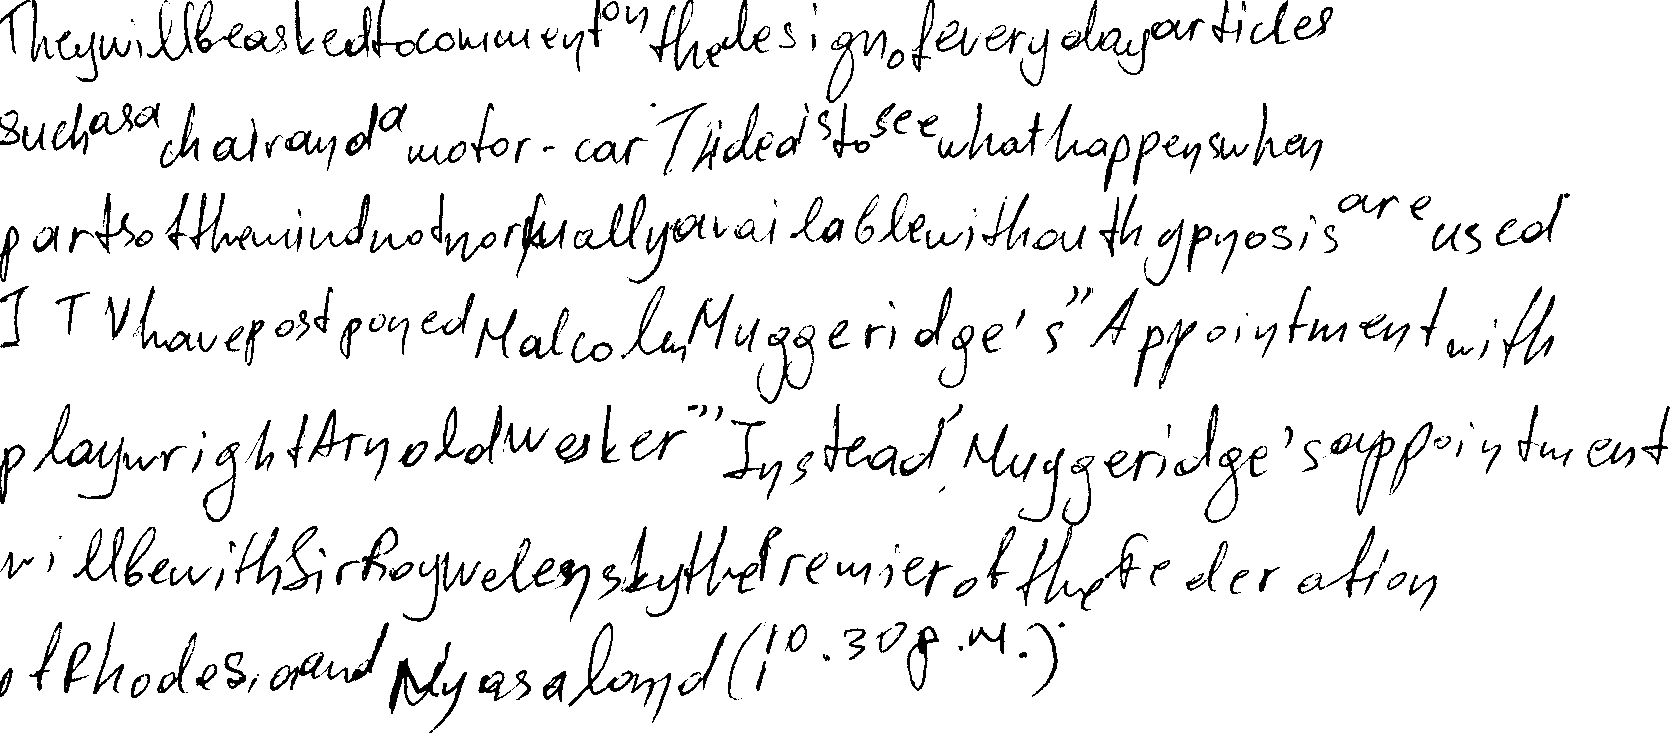 They will be asked to comment on the design of everyday articles
such as a chair and a motor-car. Thidea is to see what happens when
parts of the mind not normally available without hypnosis are used
ITV have postponed Malcolm Muggeridge's "Appointment with
playwright Arnold Wesker"". Instead, Muggeridge's appointment
will be with Sir Roy Welensky the Premier of the Federation
of Rhodesia and Nyasaland (10.30 p.m.).